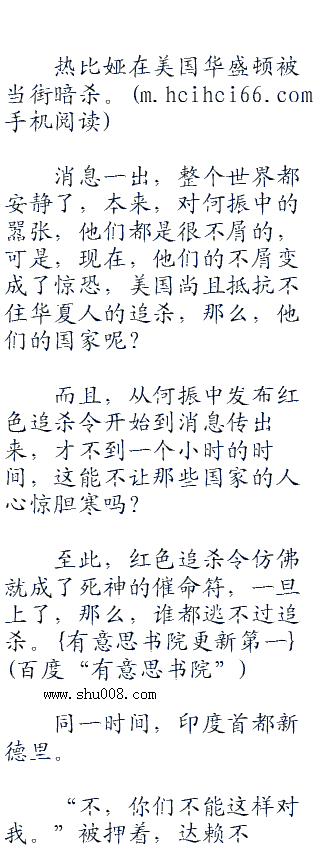 热比娅在美国华盛顿被
当街暗杀。(m.hcihci66.com
手机阅读)
消息一出，整个世界都
安静了，本来，对何振中的
嚣张，他们都是很不屑的，
可是，现在，他们的不屑变
成了惊恐，美国尚且抵抗不
住华夏人的追杀，那么，他
们的国家呢？
而且，从何振中发布红
色追杀令开始到消息传出
来，才不到一个小时的时
间，这能不让那些国家的人
心惊胆寒吗？
至此，红色追杀令仿佛
就成了死神的催命符，一旦
上了，那么，谁都逃不过追
杀。{有意思书院更新第一}
(百度“有意思书院”)
www.shu008.com
同一时间，印度首都新
德里。
“不，你们不能这样对
我。”被押着，达赖不